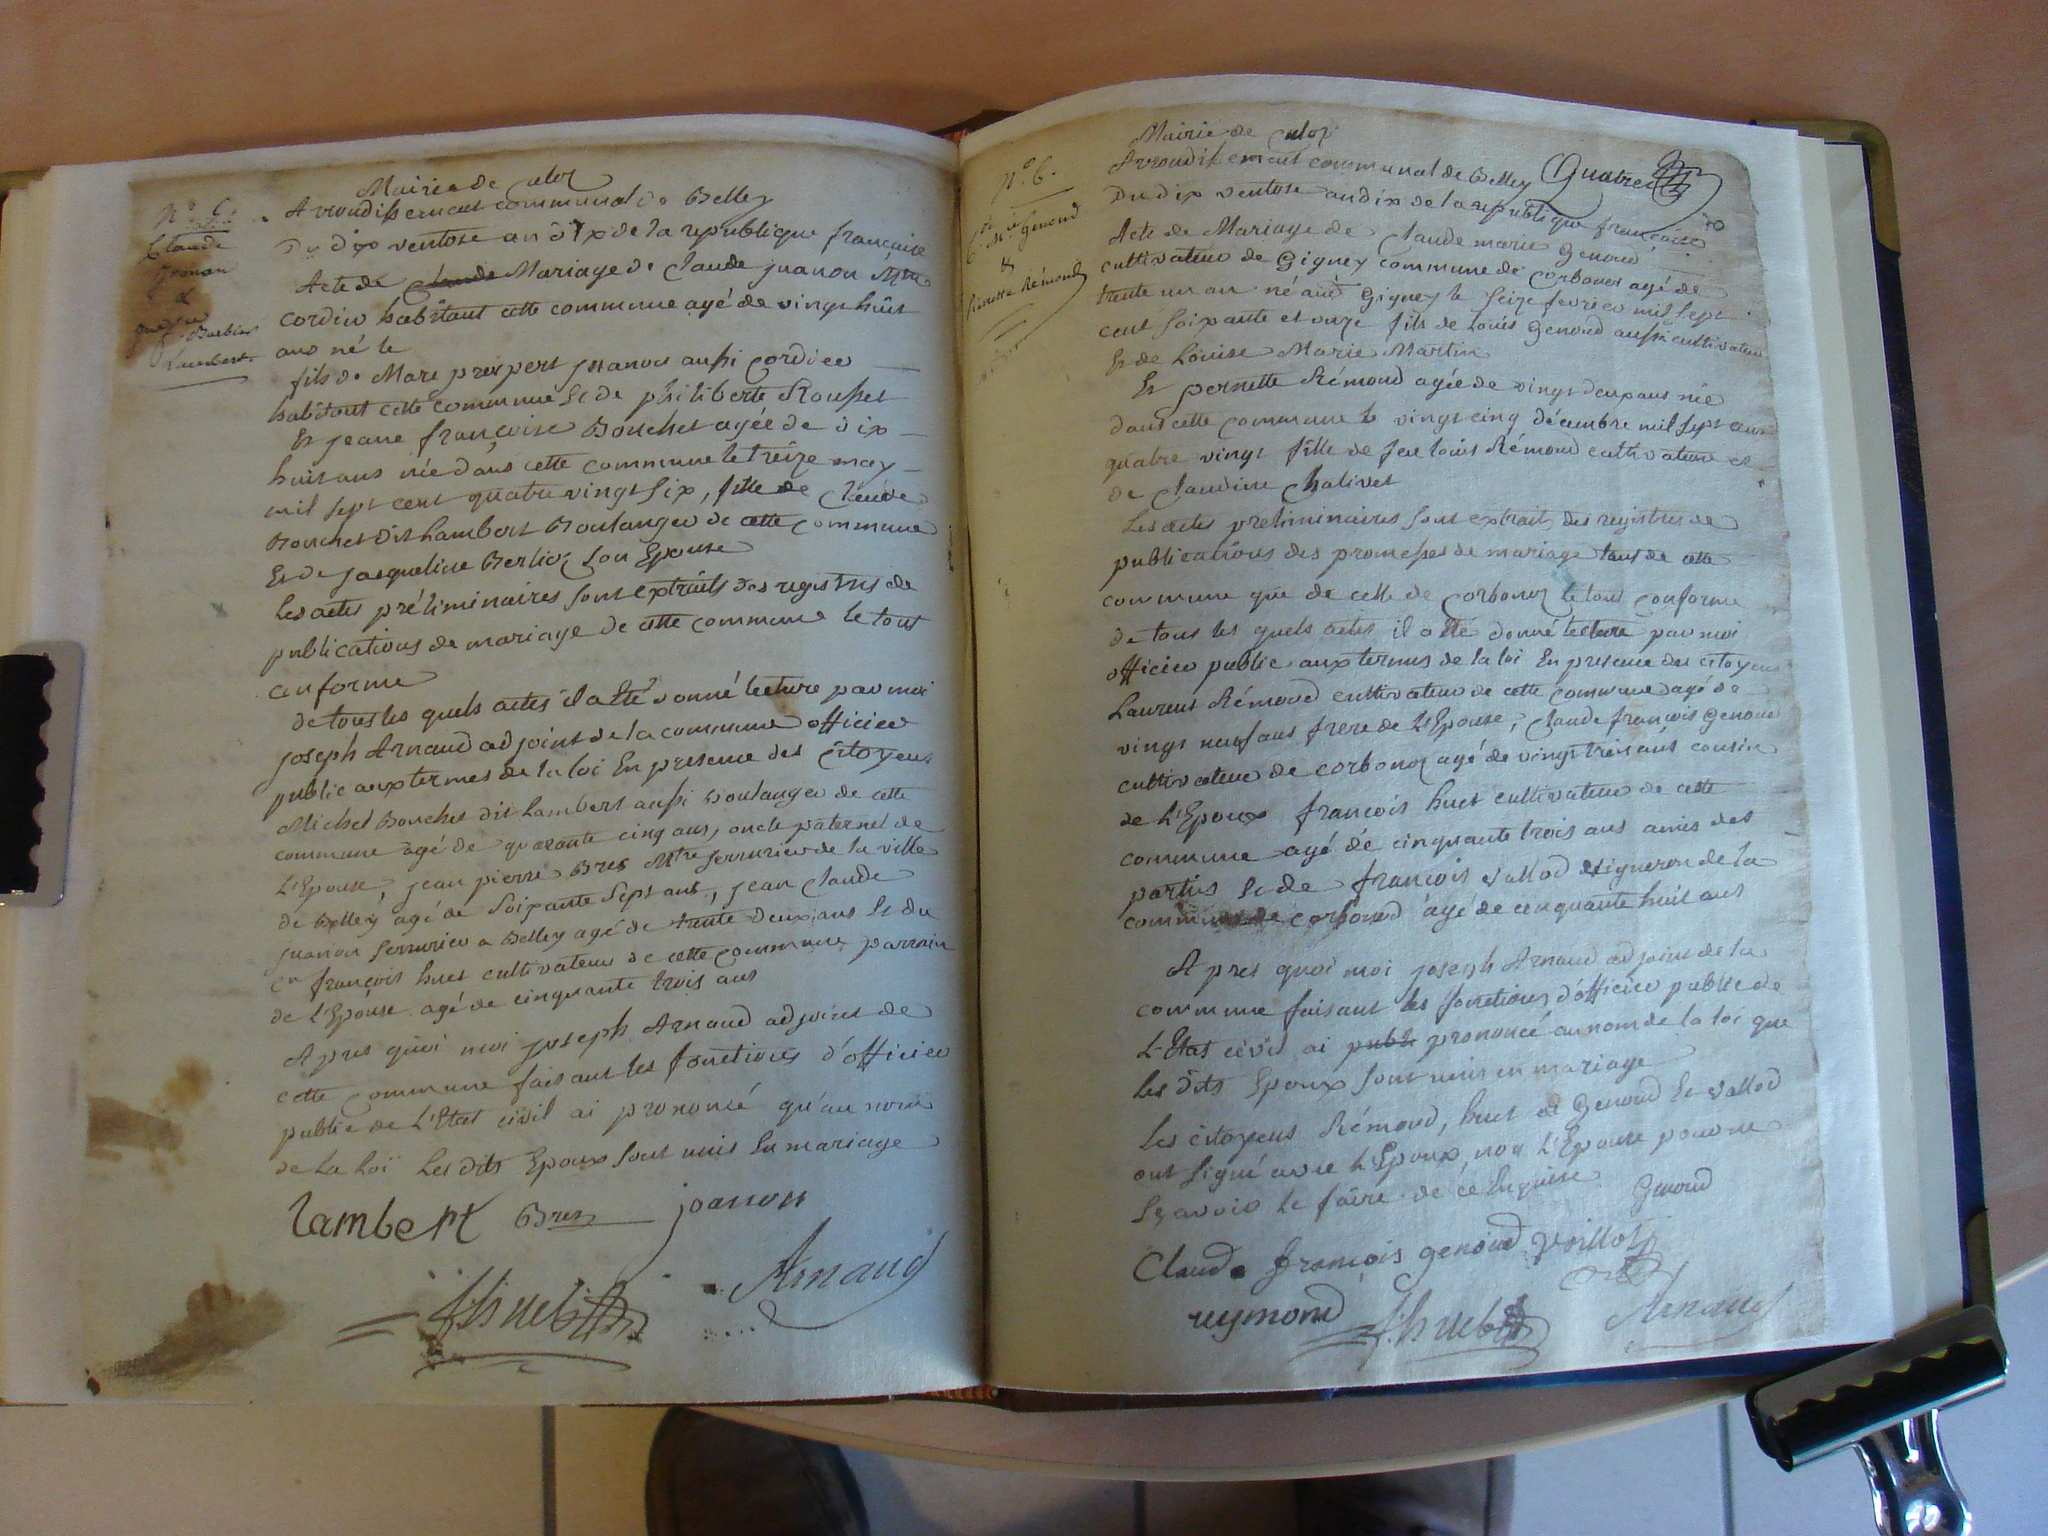 Mairie de Culoz
N° 5.
Arrondissement communal de Belley
Claude
Du dix ventose an dix de la republique française
&
Acte de Mariage de Claude juanon
Lambert
cordier habitant cette commune agé de vingt huit
ans né le
fils de Marc prospert juanon aussi cordier
habitant cette commune Et de philiberte Rousset
Et jeane françoise Bouchet agée de dix
huit ans née dans cette commune le treize may
mil sept cent quatre vingt six, fille de Claude
Bouchet dit Lambert Boulanger de cette commune
Et de jacqueline Berlioz son Epouse
Les actes préliminaires sont extraits des registres de
publications de mariage de cette commune le tout
conforme
de tous les quels actes il a Eté donné lecture par moi
joseph Arnaud adjoint de la commune officier
public aux termes de la loi En presence des citoyens
Michel Bouchet dit Lambert aussi Boulanger de cette
commune agé de quarante cinq ans, oncle paternel de
L'Epouse, jean pierre Bres Mtre serrurier de la ville
de Belley agé de soixante sept ans, jean Claude
juanon serrurier a Belley agé de trente deux ans Et du
cn françois huet cultivateur de cette commune parrain
de L'Epouse agé de cinquante trois ans
Apres quoi moi joseph Arnaud adjoint de
cette commune faisant les fonctions d'officier
public de L'Etat civil ai prononcé qu'au nom
de la Loi Les dits Epoux sont unis En mariage
Lambert Bres joanon
Arnaud
fhuet
Mairie de Culoz
N° 6.
Arrondissement communal de Belley
Quatre
Du dix ventose an dix de la republique française
Cde Mie Genoud
&
Pernette Rémond
Acte de Mariage de Claude marie Genoud
cultivateur de Gigney commune de Corbonoz agé de
trente un an né audit Gigney le seize fevrier mil sept
cent soixante et onze fils de Louis Genoud aussi cultivateur
Et de Louise Marie Martin
Et pernette Rémond agée de vingt deux ans née
dans cette commune le vingt cinq décembre mil sept cent
quatre vingt fille de feu louis Rémond cultivateur et
de Claudine Chalivet
Les actes preliminaires sont extraits des registres de
publications des promesses de mariage tant de cette
commune que de celle de Corbonoz le tout conforme
de tous les quels actes il a été donné lecture par moi
officier public aux termes de la loi En presence des citoyens
Laurent Rémond cultivateur de cette commune agé de
vingt neuf ans frere de L'Epouse, Claude françois Genoud
cultivateur de corbonoz agé de vingt trois ans cousin
de L'Epoux françois huet cultivateur de cette
commune agé de cinquante trois ans amis des
parties Et de françois vallod vigneron de la
commune de corbonod agé de cinquante huit ans
Apres quoi moi joseph Arnaud adjoint de la
commune faisant les fonctions d'officier public de
L'Etat civil ai publi prononcé au nom de la loi que
les dits Epoux sont unis en mariage
Les citoyens Rémond, huet et Genoud Et vallod
ont signé avec L'Epoux, non L'Epouse pour ne
sçavoir le faire de ce Enquise
Genoud
Claude françois genoud
reymond fhuet Arnaud